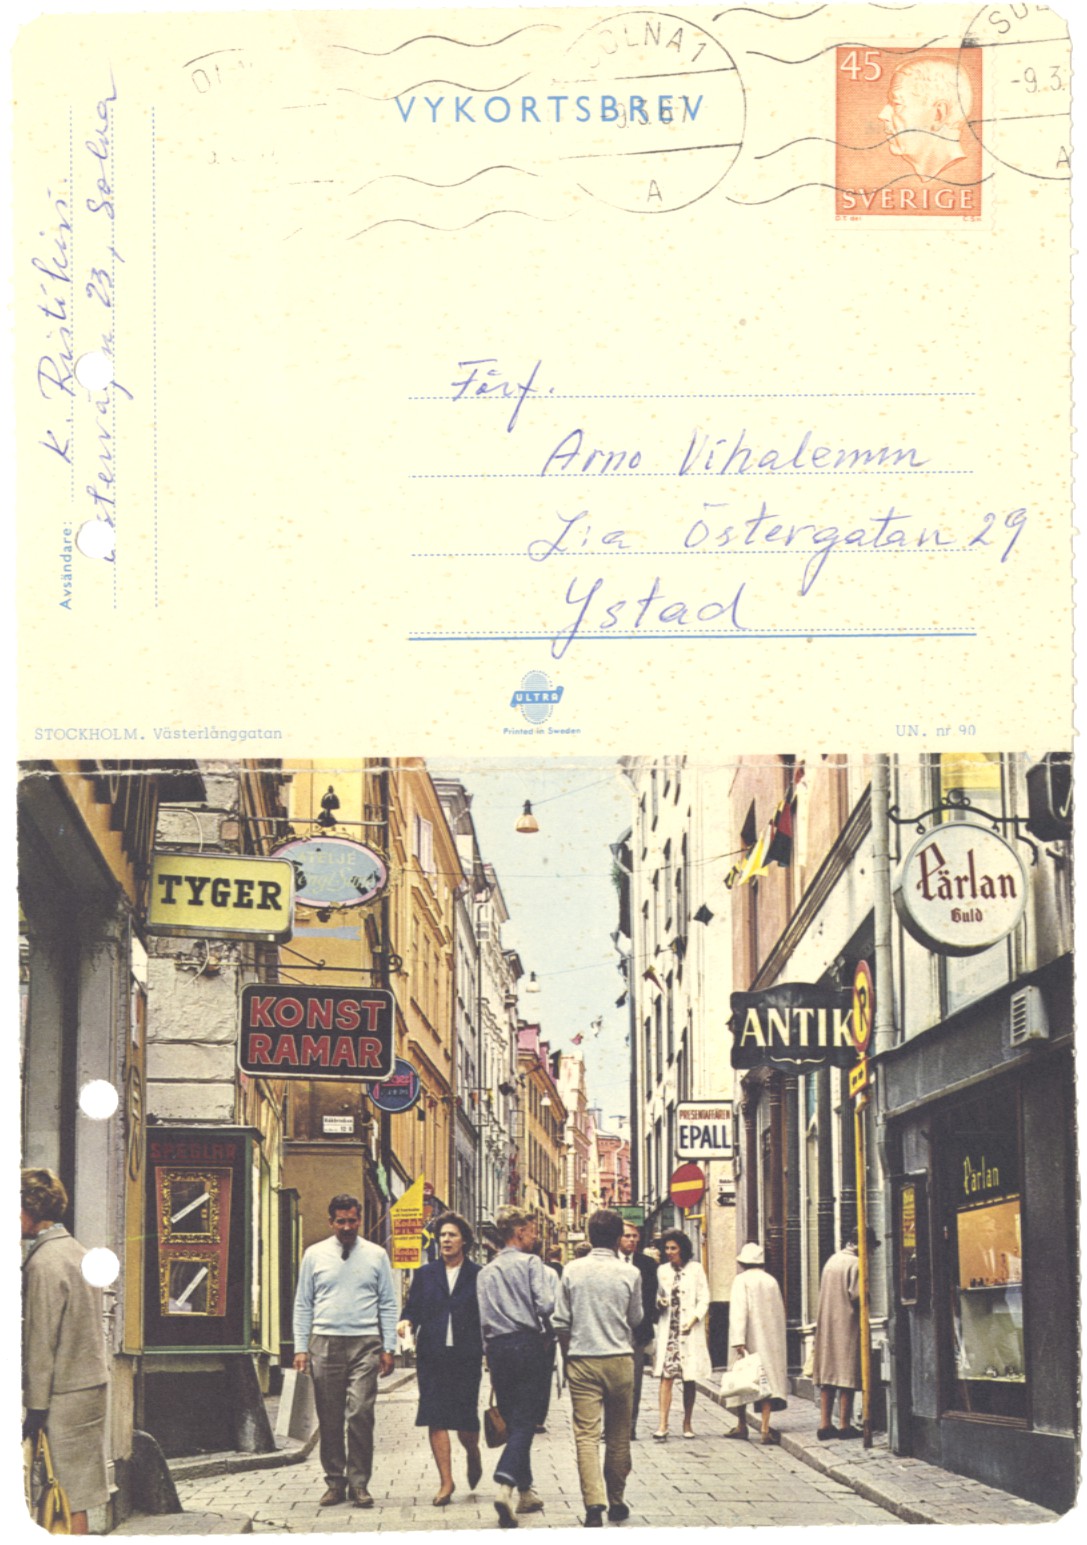 SOLNA 1
9.3.67
A
VYKORTSBREV
45
SVERIGE
-9.3.
A
Avsändare:
K. Ristikivi
23, Solna
Förf.
Arno Vihalemm
L:a Östergatan 29
Ystad
ULTRA
Printed in Sweden
STOCKHOLM. Västerlånggatan
UN. nr 90
TYGER
KONST
RAMAR
SPEGLAR
PRESENTAFFÄREN
EPALL
ANTIK
Pärlan
Guld
Pärlan